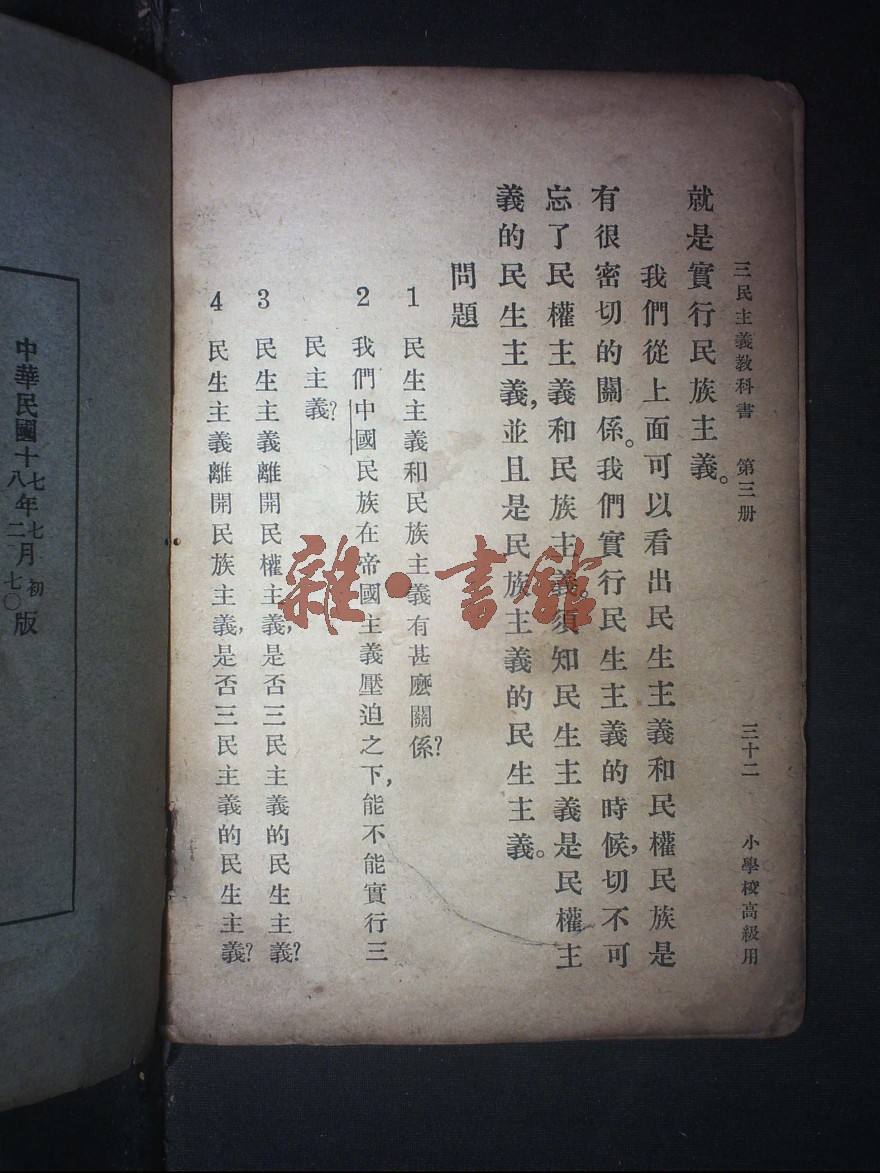 三民主義教科書 第三册 三十二 小學校高級用
就是實行民族主義。
我們從上面可以看出民生主義和民權民族是
有很密切的關係。我們實行民生主義的時候,切不可
忘了民權主義和民族主義。須知民生主義是民權主
義的民生主義,並且是民族主義的民生主義。
問題
1 民生主義和民族主義有甚麼關係?
2 我們中國民族在帝國主義壓迫之下,能不能實行三
民主義?
3 民生主義離開民權主義,是否三民主義的民生主義?
4 民生主義離開民族主義,是否三民主義的民生主義?
雜·書館
中華民國十七年七月初版
八 二 七〇